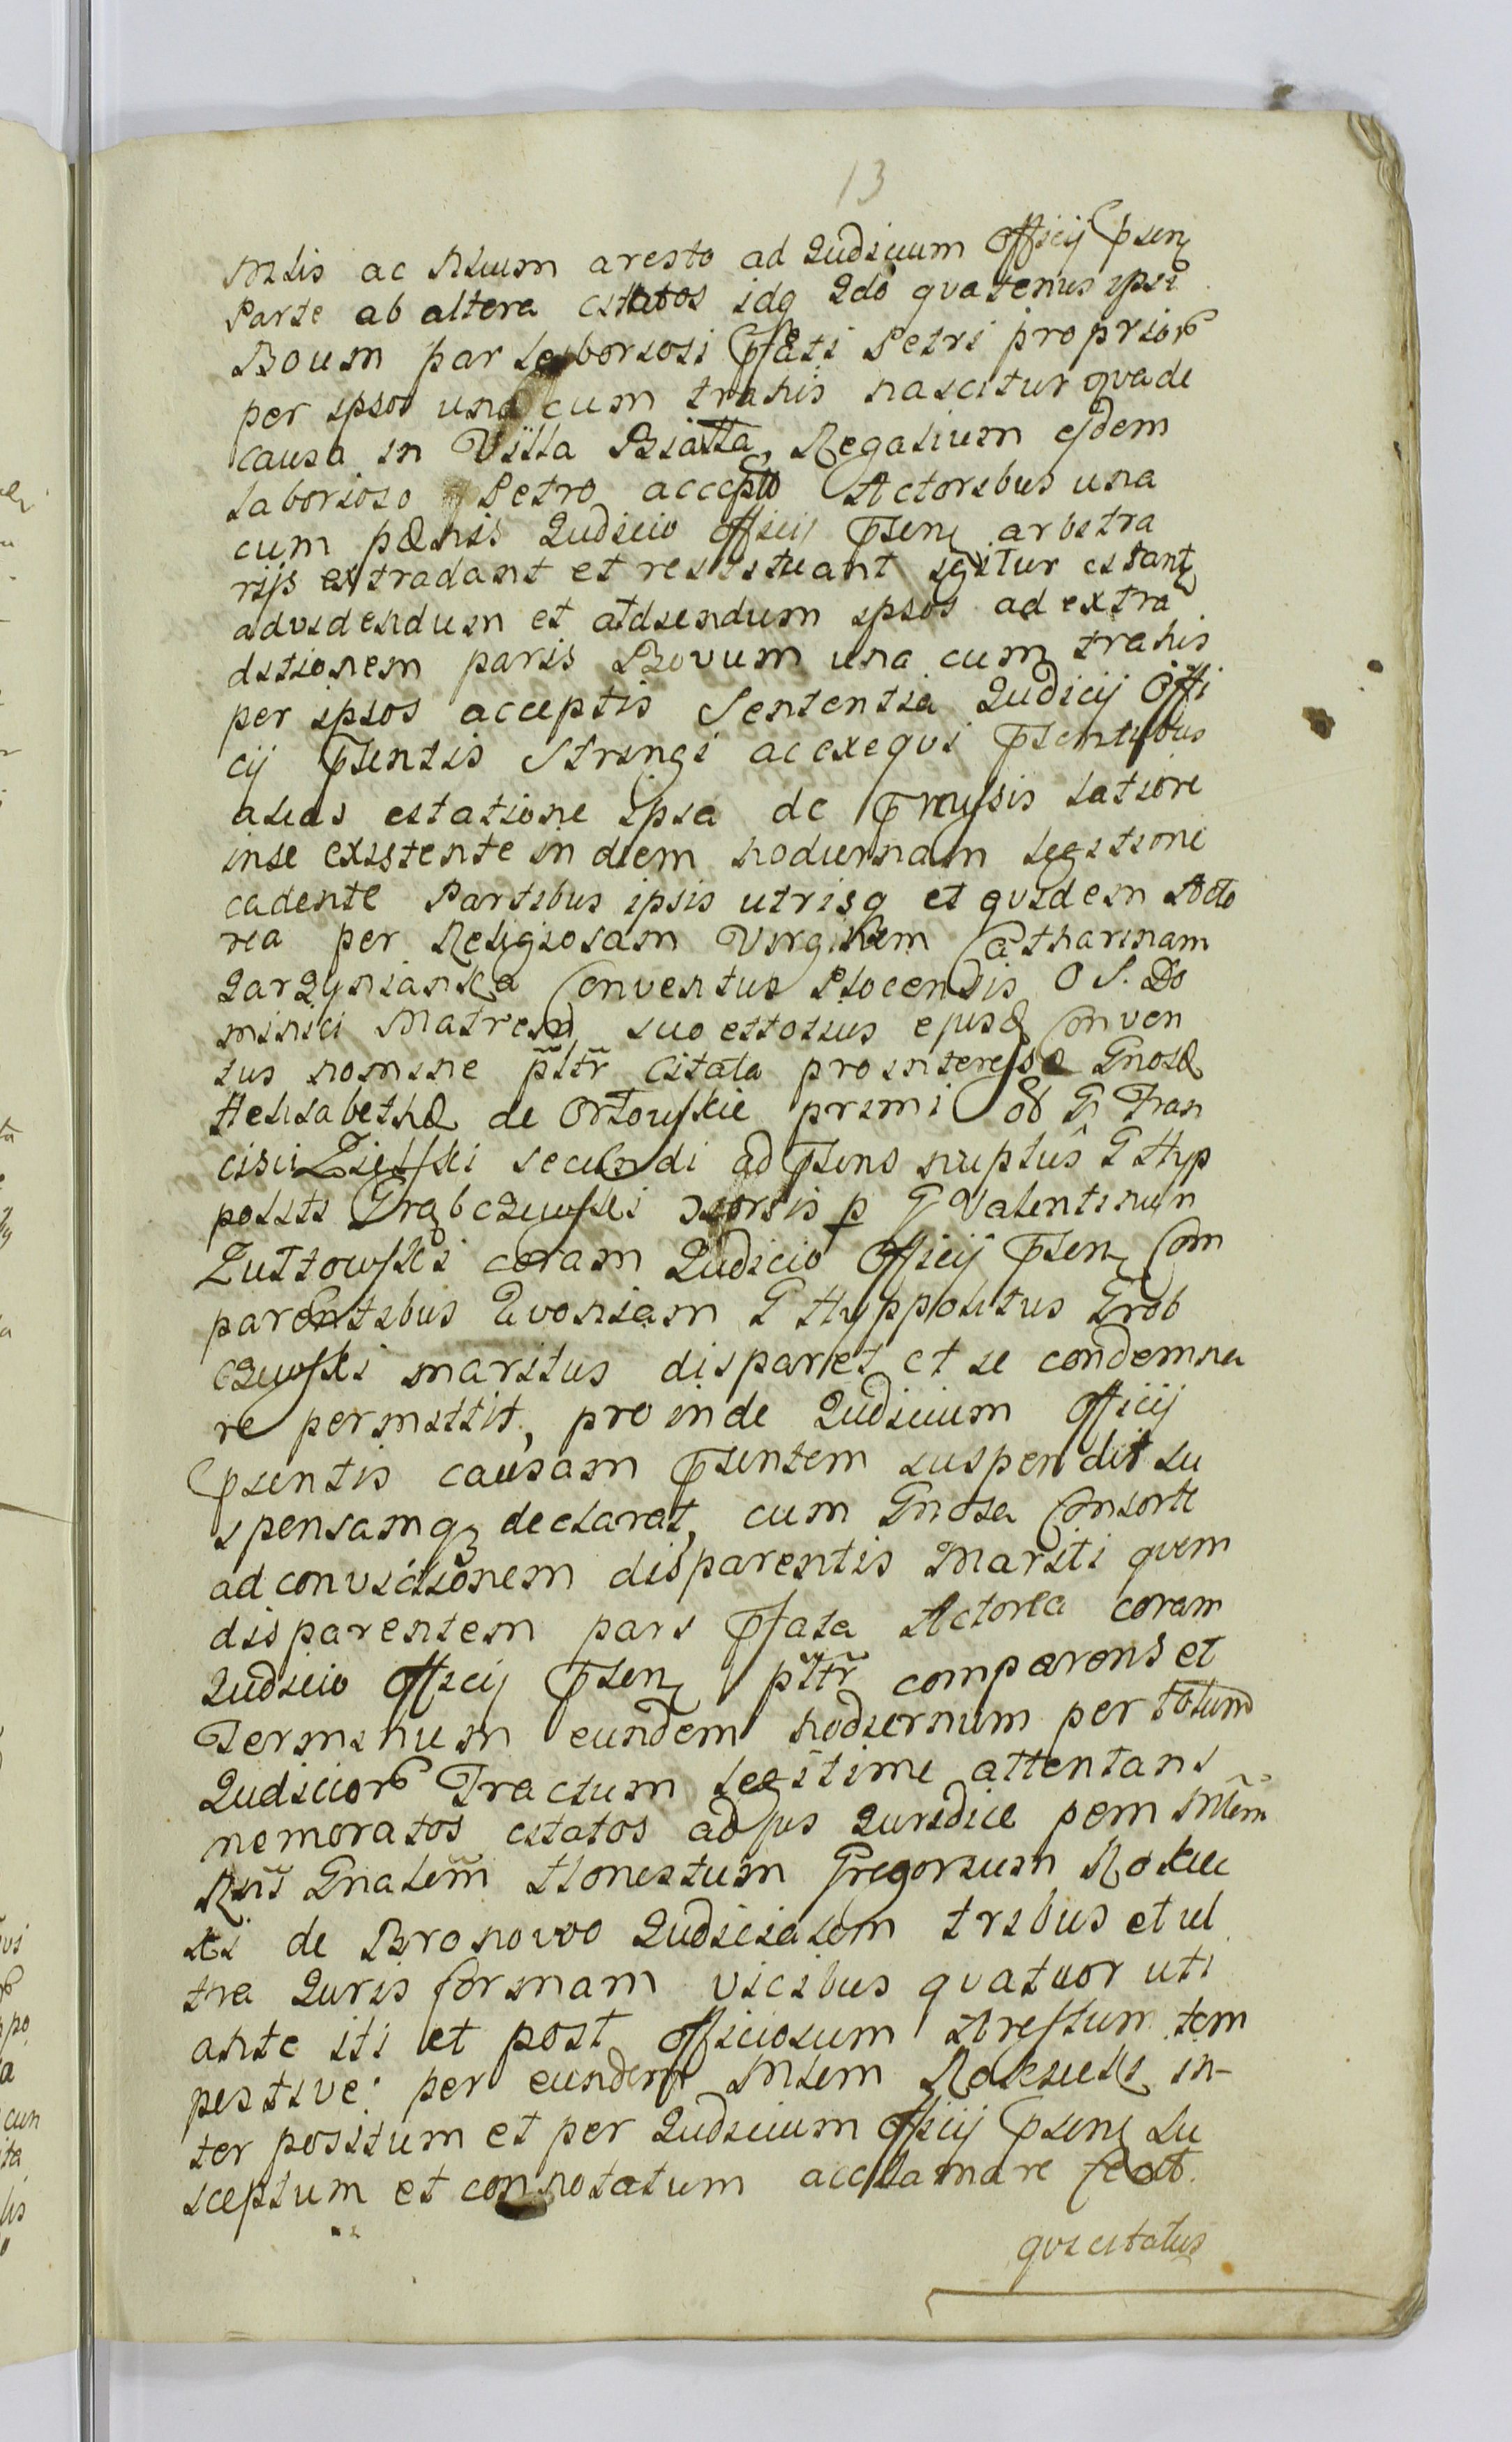 13
Mtis ac Aluum aresto ad Judicium Officij Psen
Parte ab altera citatos idq Ido qvatenus ipsi
Boum par laboriosi Pfati Petri proprior
per ipsos una cum trahis nascitur qvade
causa in Villa Biała, Regalium ejdem
laborioso Petro accepto Actoribus una
cum pænis Judicio Officij Psen arbitra
rijs extradant et restituant igitur citant
advidendum et atdiendum ipsos ad extra
ditionem paris Bovum una cum trahis
per ipsos acceptis Sententia Judicij Offi
cij Psentis Stringi ac exeqvi Psentibus
alias citatione ipsa de Pmissis latiore
inse existente in diem hodiernam legitime
cadente Partibus ipsis utrisq et qvidem Acto
rea per Religiosam Virginem Catharinam
Jarzynianka Conventus Plocensis O S. Do
minici Matrem suo et totius ejusd Conven
tus nomine psltr citata pro interesse Gnosæ
Helisabethæ de Orłowskie primi ob G Fran
cisci Zielski secundi ad Psens nuptûs G Hyp
politi Grąbczewski uxoris p G Valentinum
Zułtowski coram Judicio Officij Psen Com
parentibus Qvoniam G Hyppolitus Grąb
czewski maritus disparet et se condemna
re permittit, proinde Judicium Officij
Psentis causam Psentem suspendit su
spensamq declarat, cum Gnosa Consorte
ad convictionem disparentis Mariti qvem
disparentem pars Pfata Actorea coram
Judicio Officij Psen psltr comparens et
Terminum eundem hodiernum per totum
Judicior Tractum legitime attentans
nemoratos citatos adjus Juridice pem Mtem
Rni Gnalem Honestum Gregorium Rokic
ki de Bronowo Judicialem tribus et ul
tra Juris formam vicibus qvatuor uti
ante iti et post officiosum Arestum tem
pestive per eundem Mtem Rokicki in-
ter positum et per Judicium Officij Psen su
sceptum et connotatum acclamare fecit.
qvi citatus